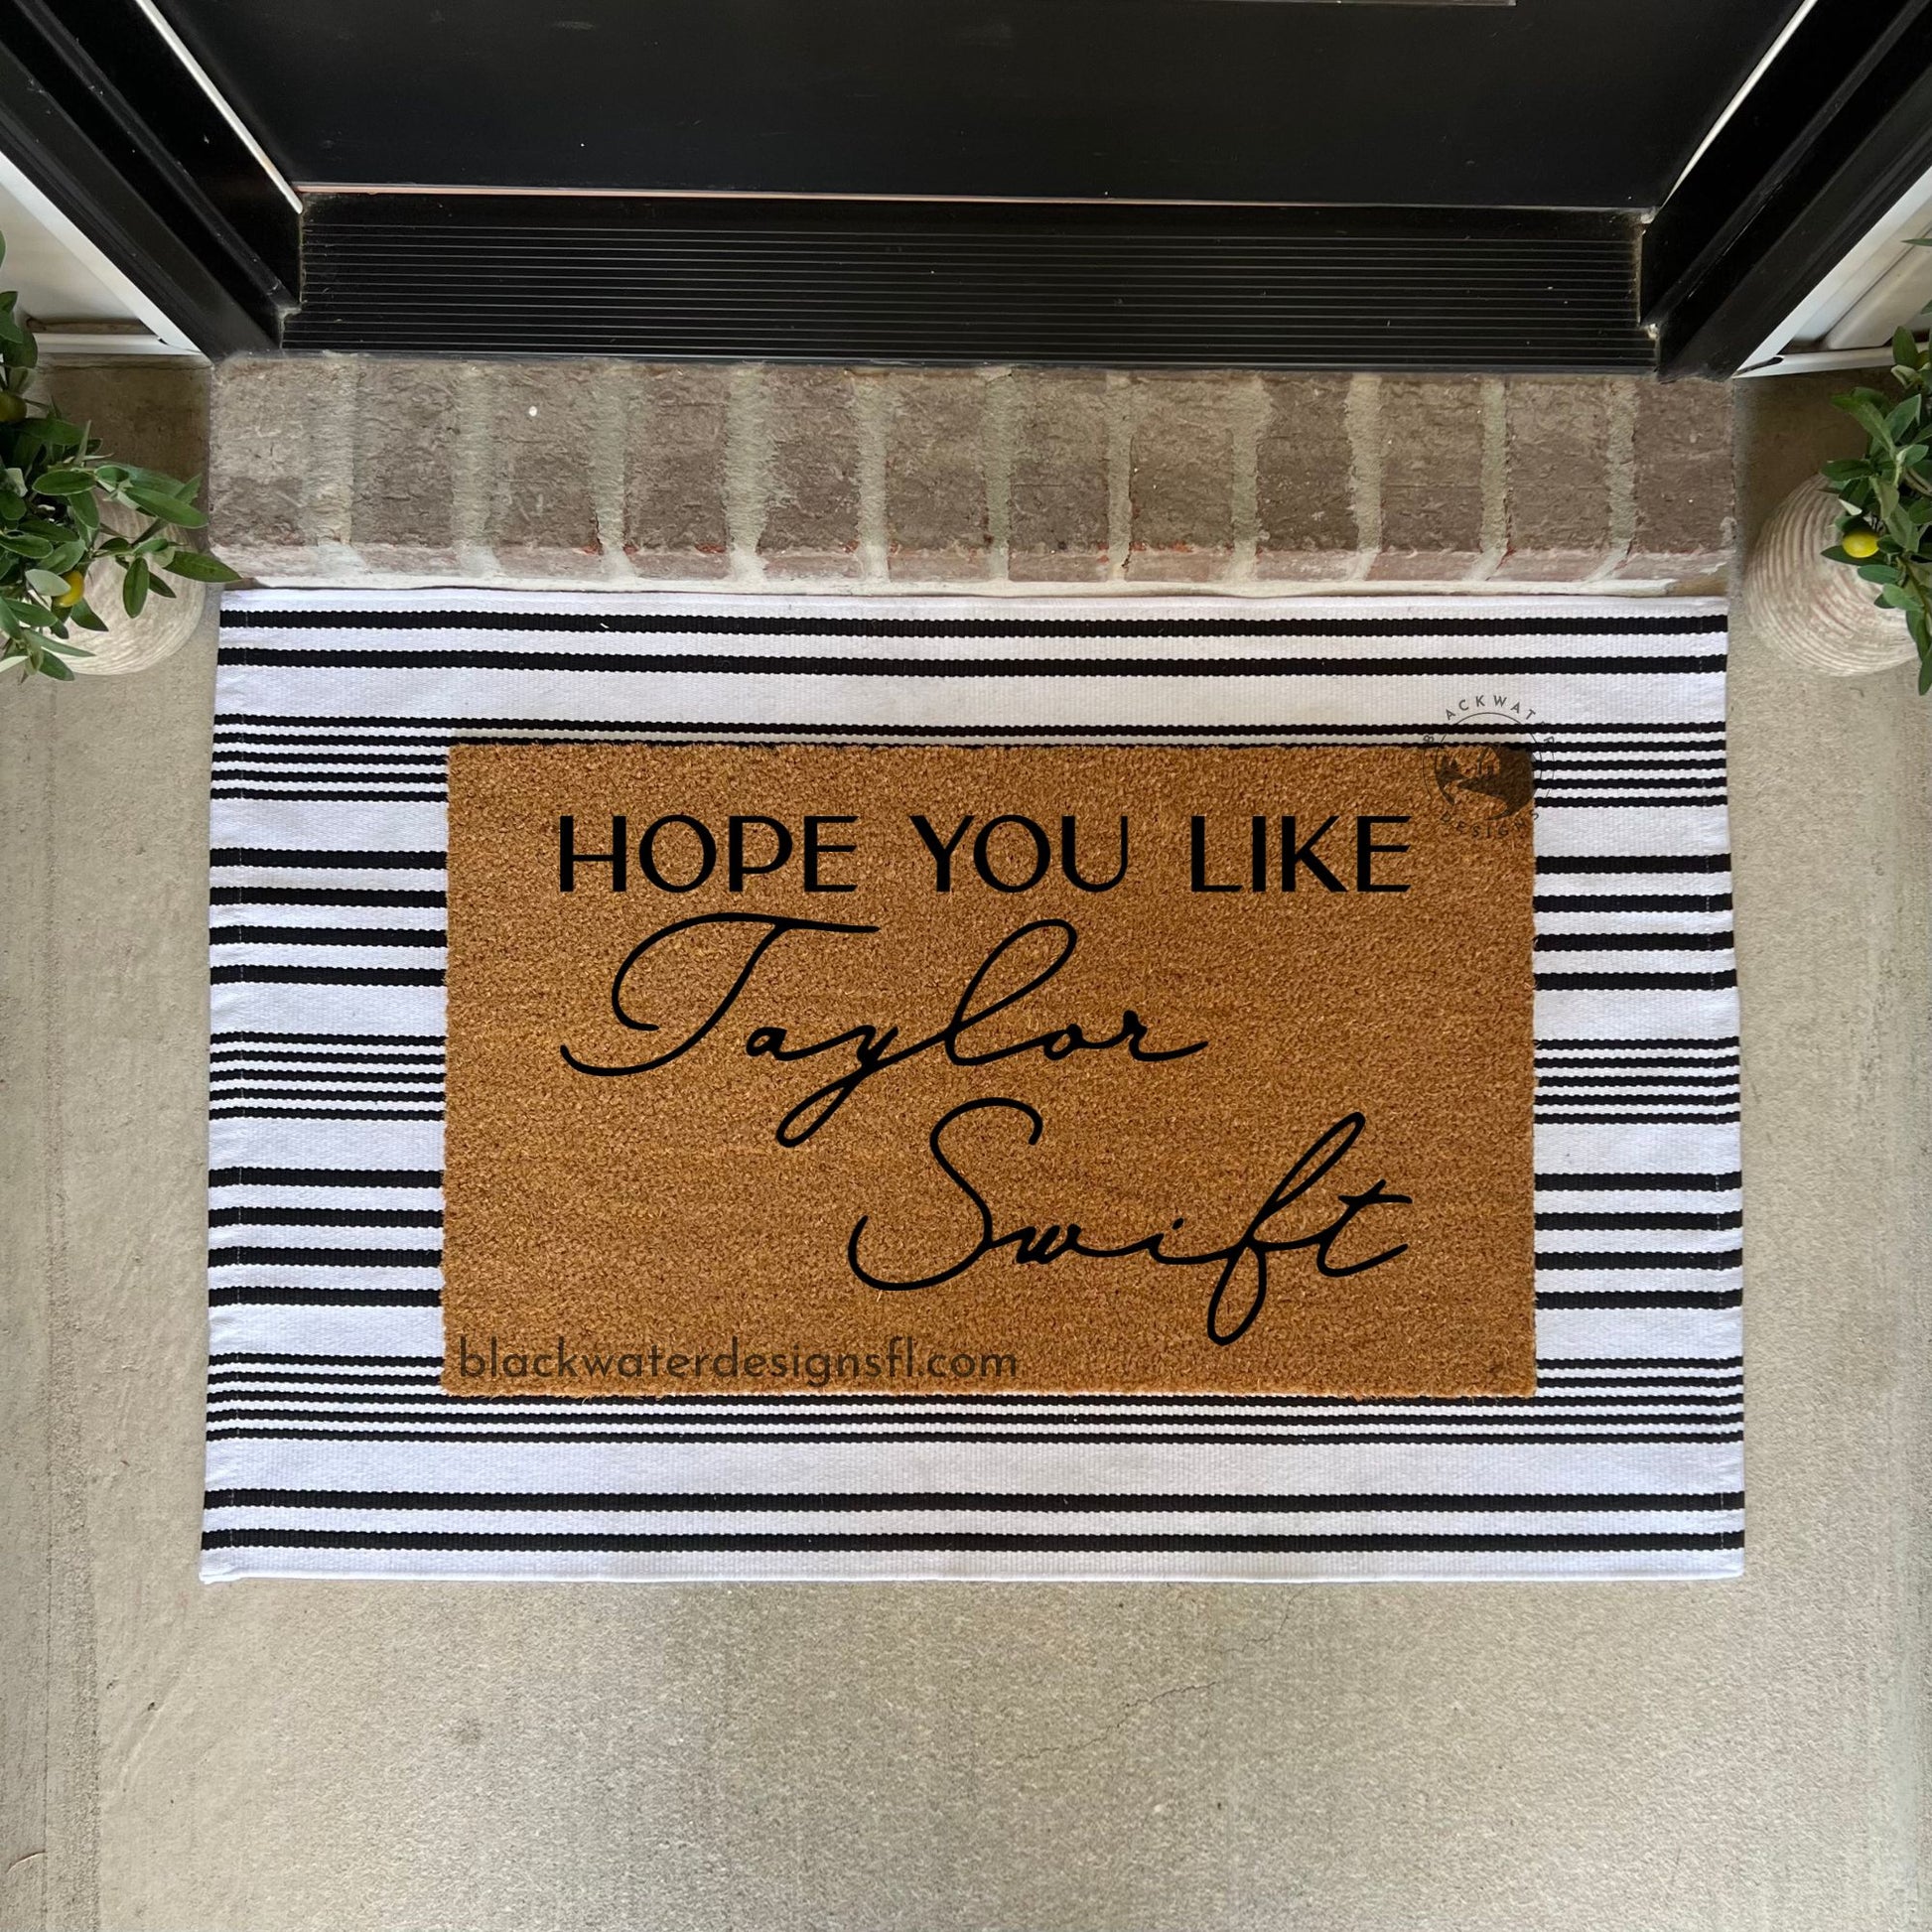 BLACKWATER
DESIGNS
HOPE YOU LIKE
Taylor
Swift
blackwaterdesignsfl.com